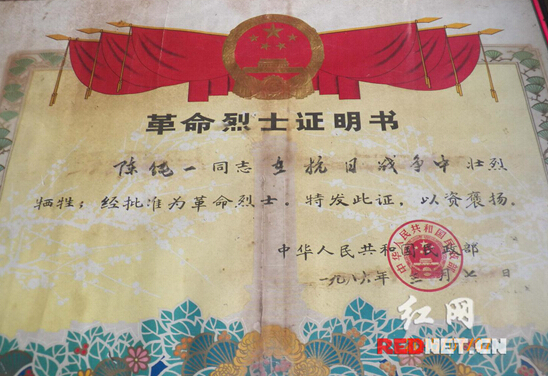 革命烈士证明书
陈纯一同志在抗日战争中壮烈
牺牲，经批准为革命烈士。特发此证，以资褒扬。
中华人民共和国民政部
一九八六年三月 日
红网
REDNET.CN